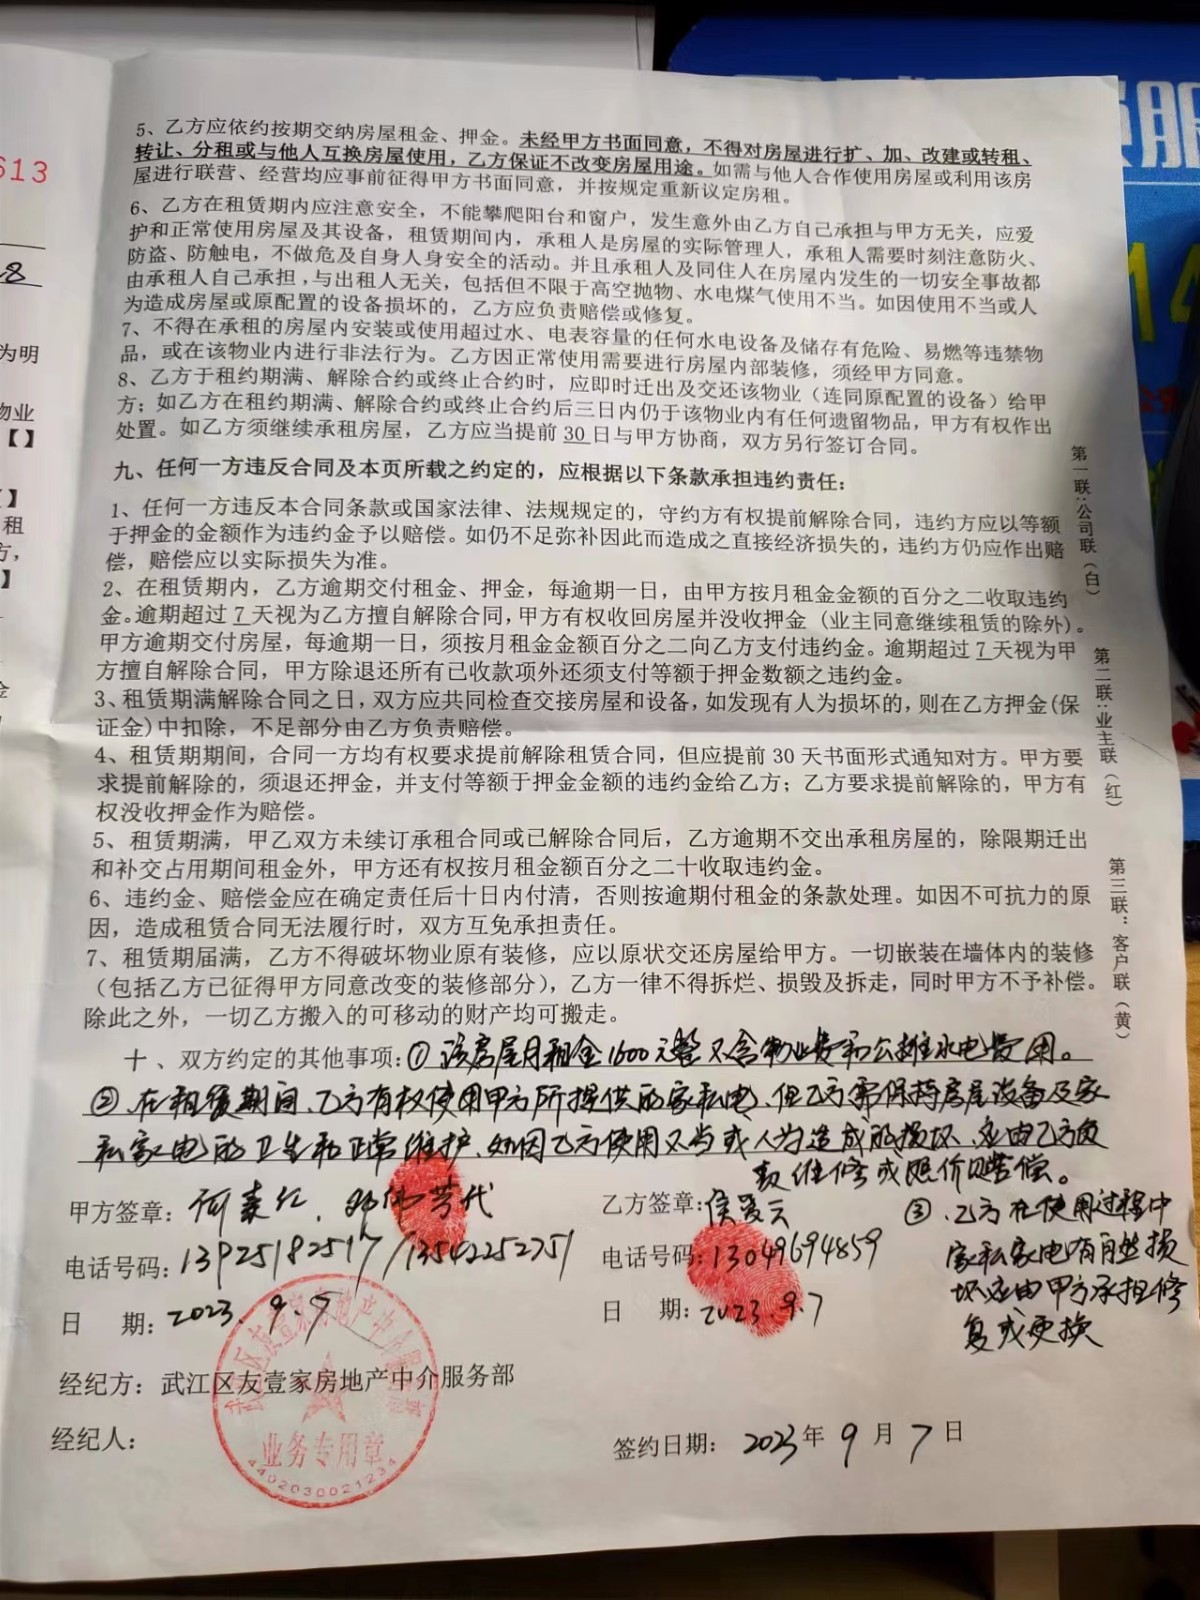 613
28
为明
物业
【】
】
租
方,
】
金
5、乙方应依约按期交纳房屋租金、押金。未经甲方书面同意，不得对房屋进行扩、加、改建或转租、
转让、分租或与他人互换房屋使用，乙方保证不改变房屋用途。如需与他人合作使用房屋或利用该房
屋进行联营、经营均应事前征得甲方书面同意，并按规定重新议定房租。
6、乙方在租赁期内应注意安全，不能攀爬阳台和窗户，发生意外由乙方自己承担与甲方无关，应爱
护和正常使用房屋及其设备，租赁期间内，承租人是房屋的实际管理人，承租人需要时刻注意防火、
防盗、防触电，不做危及自身人身安全的活动。并且承租人及同住人在房屋内发生的一切安全事故都
由承租人自己承担,与出租人无关，包括但不限于高空抛物、水电煤气使用不当。如因使用不当或人
为造成房屋或原配置的设备损坏的，乙方应负责赔偿或修复。
7、不得在承租的房屋内安装或使用超过水、电表容量的任何水电设备及储存有危险、易燃等违禁物
品，或在该物业内进行非法行为。乙方因正常使用需要进行房屋内部装修，须经甲方同意。
8、乙方于租约期满、解除合约或终止合约时，应即时迁出及交还该物业（连同原配置的设备）给甲
方；如乙方在租约期满、解除合约或终止合约后三日内仍于该物业内有任何遗留物品，甲方有权作出
处置。如乙方须继续承租房屋，乙方应当提前 30 日与甲方协商，双方另行签订合同。
九、任何一方违反合同及本页所载之约定的，应根据以下条款承担违约责任：
1、任何一方违反本合同条款或国家法律、法规规定的，守约方有权提前解除合同，违约方应以等额
于押金的金额作为违约金予以赔偿。如仍不足弥补因此而造成之直接经济损失的，违约方仍应作出赔
偿，赔偿应以实际损失为准。
2、在租赁期内，乙方逾期交付租金、押金，每逾期一日，由甲方按月租金金额的百分之二收取违约
金。逾期超过 7 天视为乙方擅自解除合同，甲方有权收回房屋并没收押金（业主同意继续租赁的除外)。
甲方逾期交付房屋，每逾期一日，须按月租金金额百分之二向乙方支付违约金。逾期超过 7 天视为甲
方擅自解除合同，甲方除退还所有已收款项外还须支付等额于押金数额之违约金。
3、租赁期满解除合同之日，双方应共同检查交接房屋和设备，如发现有人为损坏的，则在乙方押金(保
证金)中扣除，不足部分由乙方负责赔偿。
4、租赁期期间，合同一方均有权要求提前解除租赁合同，但应提前 30 天书面形式通知对方。甲方要
求提前解除的，须退还押金，并支付等额于押金金额的违约金给乙方；乙方要求提前解除的，甲方有
权没收押金作为赔偿。
5、租赁期满，甲乙双方未续订承租合同或已解除合同后，乙方逾期不交出承租房屋的，除限期迁出
和补交占用期间租金外，甲方还有权按月租金额百分之二十收取违约金。
6、违约金、赔偿金应在确定责任后十日内付清，否则按逾期付租金的条款处理。如因不可抗力的原
因，造成租赁合同无法履行时，双方互免承担责任。
7、租赁期届满，乙方不得破坏物业原有装修，应以原状交还房屋给甲方。一切嵌装在墙体内的装修
（包括乙方已征得甲方同意改变的装修部分），乙方一律不得拆烂、损毁及拆走，同时甲方不予补偿。
除此之外，一切乙方搬入的可移动的财产均可搬走。
十、双方约定的其他事项：① 该房屋月租金1600元整不含物业费和公摊水电费用。
②、在租赁期间、乙方有权使用甲方所提供的家私电、但乙方需保持房屋设备及家
私家电的卫生和正常维护、如因乙方使用不当或人为造成的损坏、应由乙方负
责维修或照价赔偿。
③、乙方在使用过程中
家私家电有自然损
坏应由甲方承担修
复或更换
甲方签章：何素红、代
电话号码：13925182517/13542252751
日 期：2023.9.7
乙方签章：侯爱云
电话号码：13049694859
日 期：2023 9.7
经纪方：武江区友壹家房地产中介服务部
经纪人：
签约日期： 2023 年 9 月 7 日
武江区友壹家房地产中介服务部
业务专用章
4402030021234
第一联:公司联（白）
第二联:业主联（红）
第三联：客户联（黄）
服
14